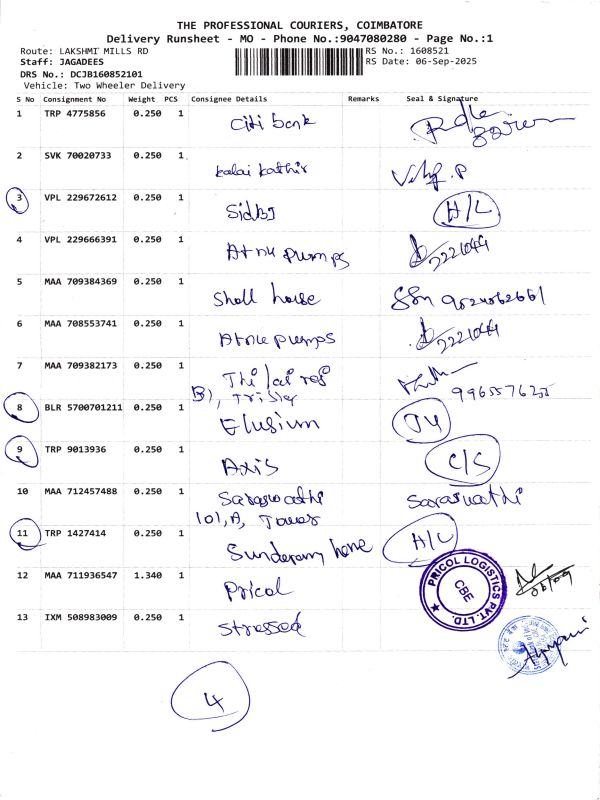 THE PROFESSIONAL COURIERS, COIMBATORE
Delivery Runsheet - MO - Phone No.:9047080280 - Page No.:1
Route: LAKSHMI MILLS RD RS No.: 1608521
Staff: JAGADEES RS Date: 06-Sep-2025
DRS No.: DCJB160852101
Vehicle: Two Wheeler Delivery
S No Consignment No Weight PCS Consignee Details Remarks Seal & Signature
1 TRP 4775856 0.250 1 Citi bank
2 SVK 70020733 0.250 1 kalai kathir
3 VPL 229672612 0.250 1 Sidbi H/L
4 VPL 229666391 0.250 1 pumps
5 MAA 709384369 0.250 1 Shall house
6 MAA 708553741 0.250 1 pumps
7 MAA 709382173 0.250 1
8 BLR 5700701211 0.250 1 Elusium
9 TRP 9013936 0.250 1 Axis C/S
10 MAA 712457488 0.250 1 Saraswathi Saraswathi
101, A, Tower
11 TRP 1427414 0.250 1 Sundaram home H/L
12 MAA 711936547 1.340 1 Pricol
PRICOL LOGISTICS PVT. LTD.
CBE
13 IXM 508983009 0.250 1 Stressed
4